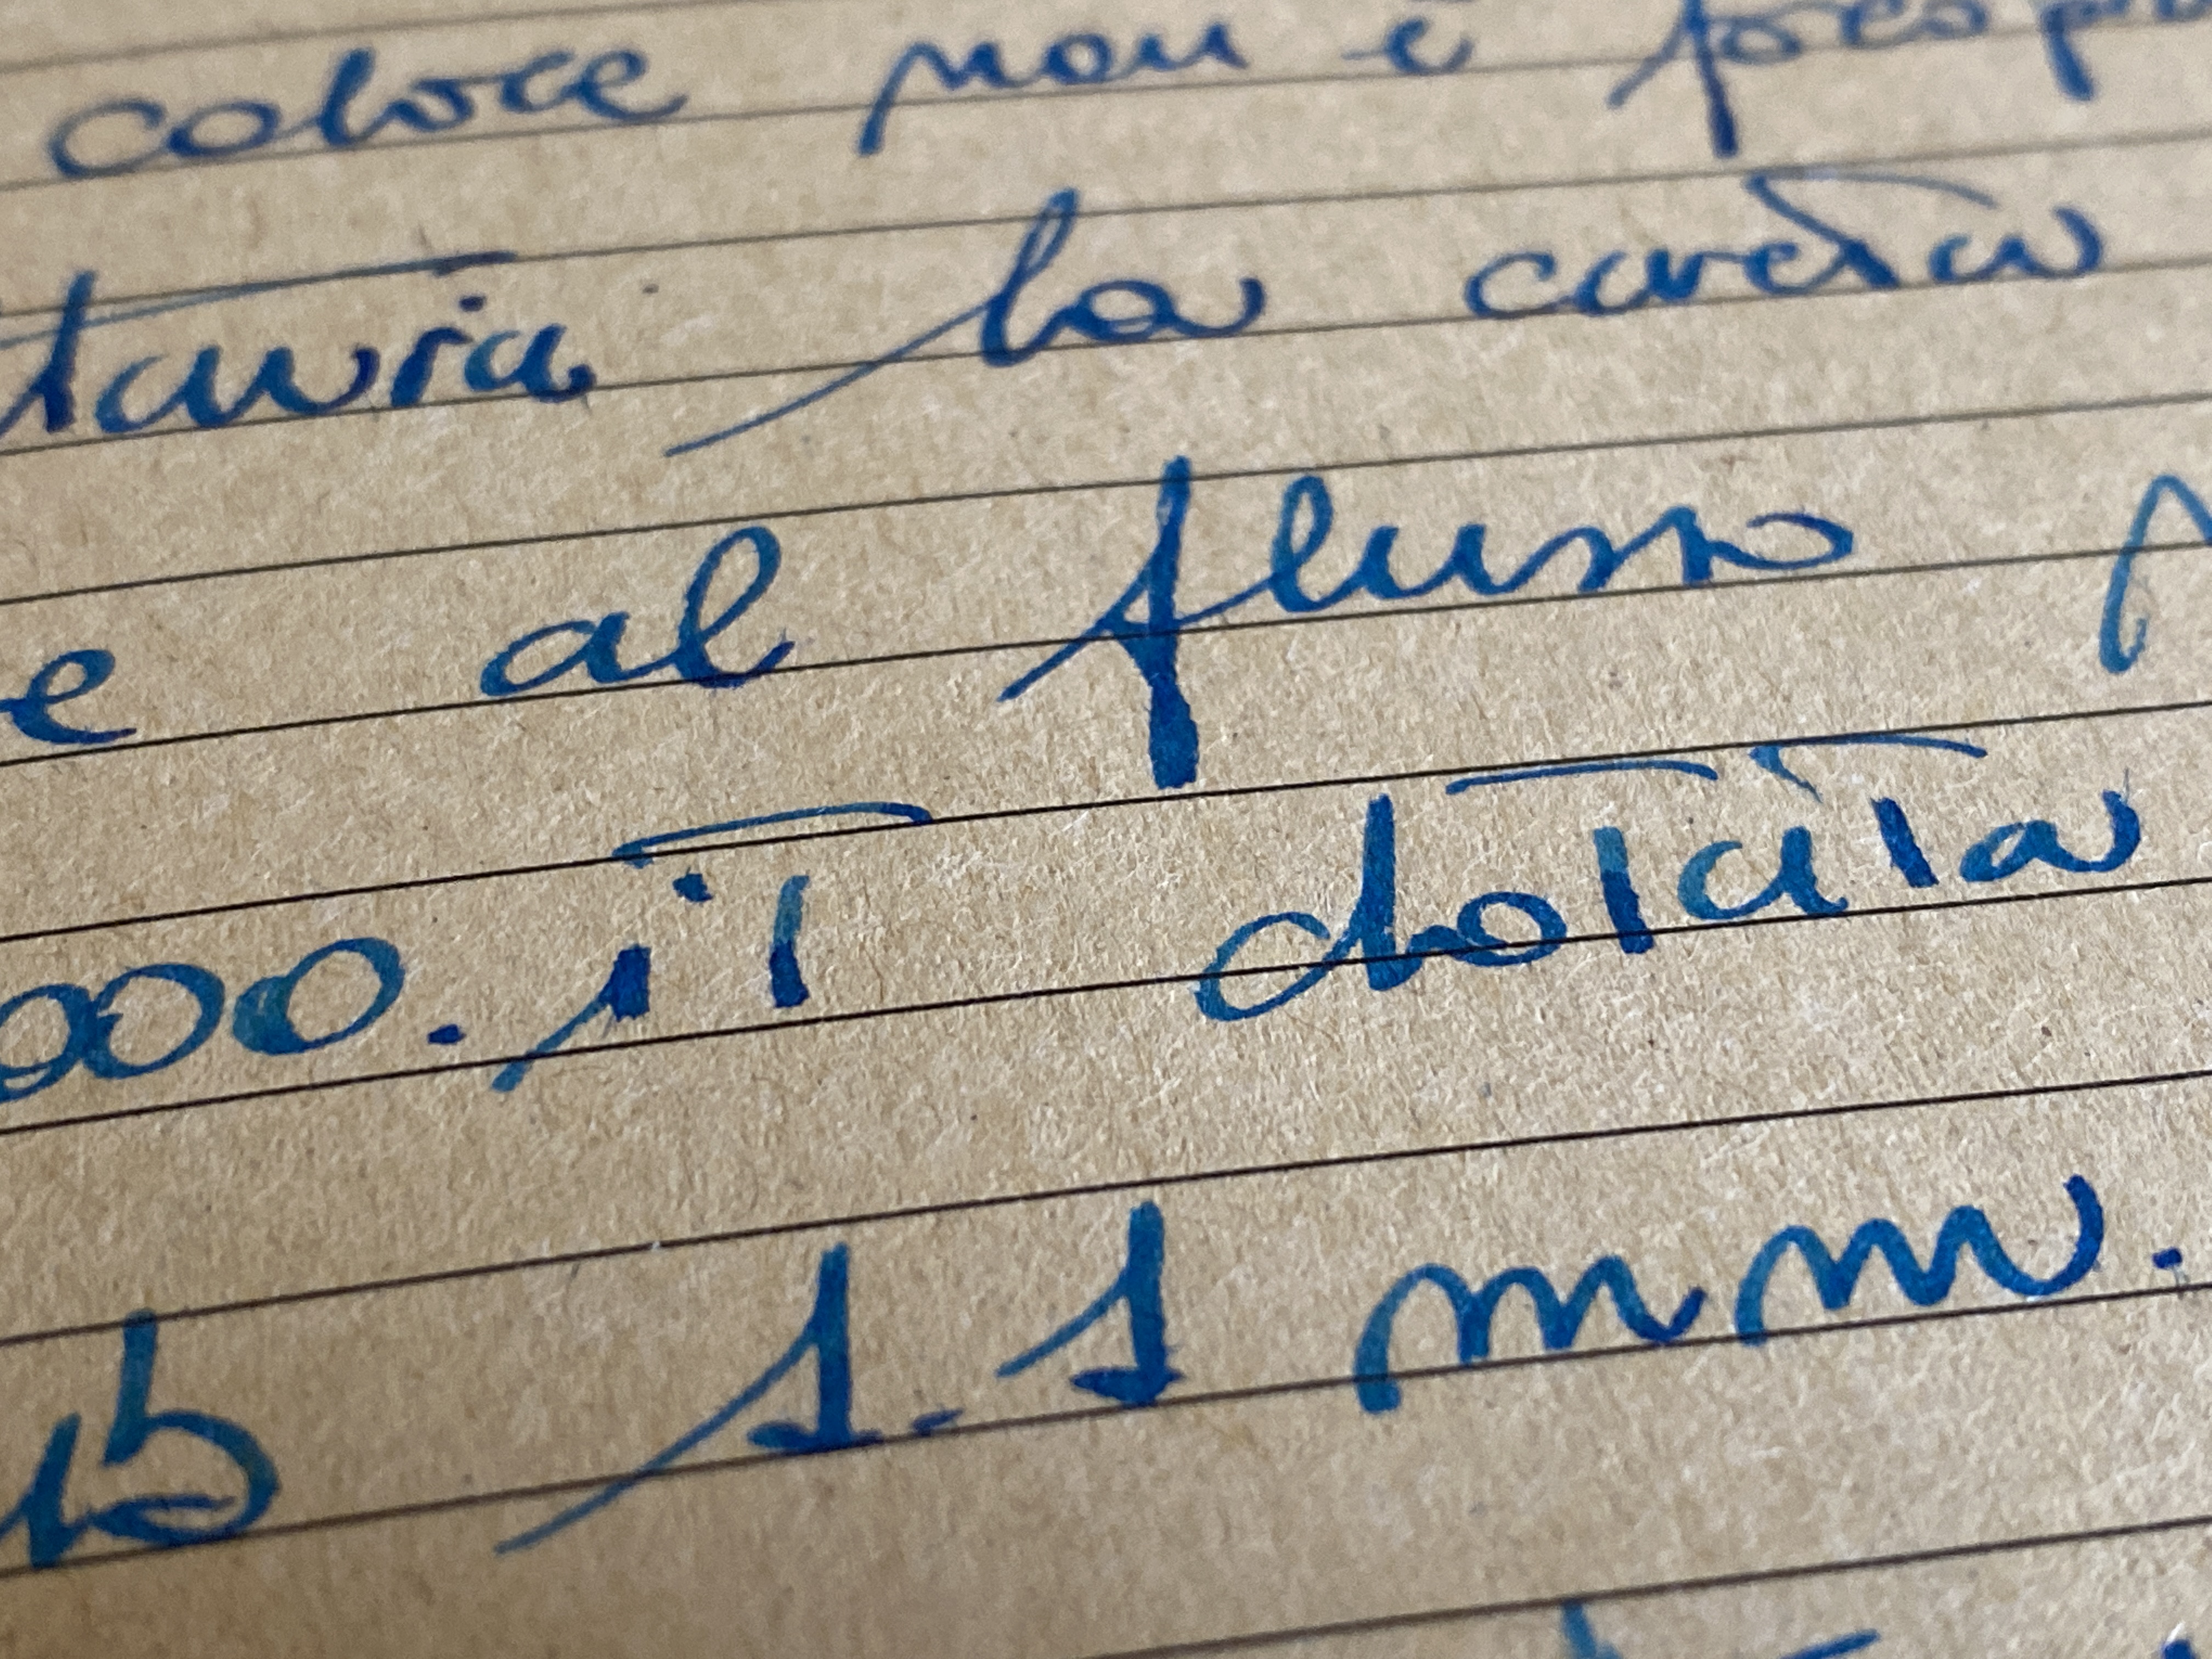 colore non è prop
tavia la carta
e al flusso
000. it dotata
b 1.1 mm.